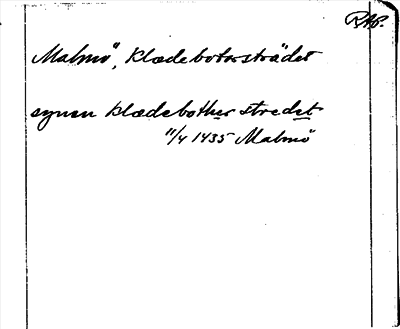 RAP.
Malmö, Klædebotersträdet
synen klædebother stredet
11/4 1435 Malmö